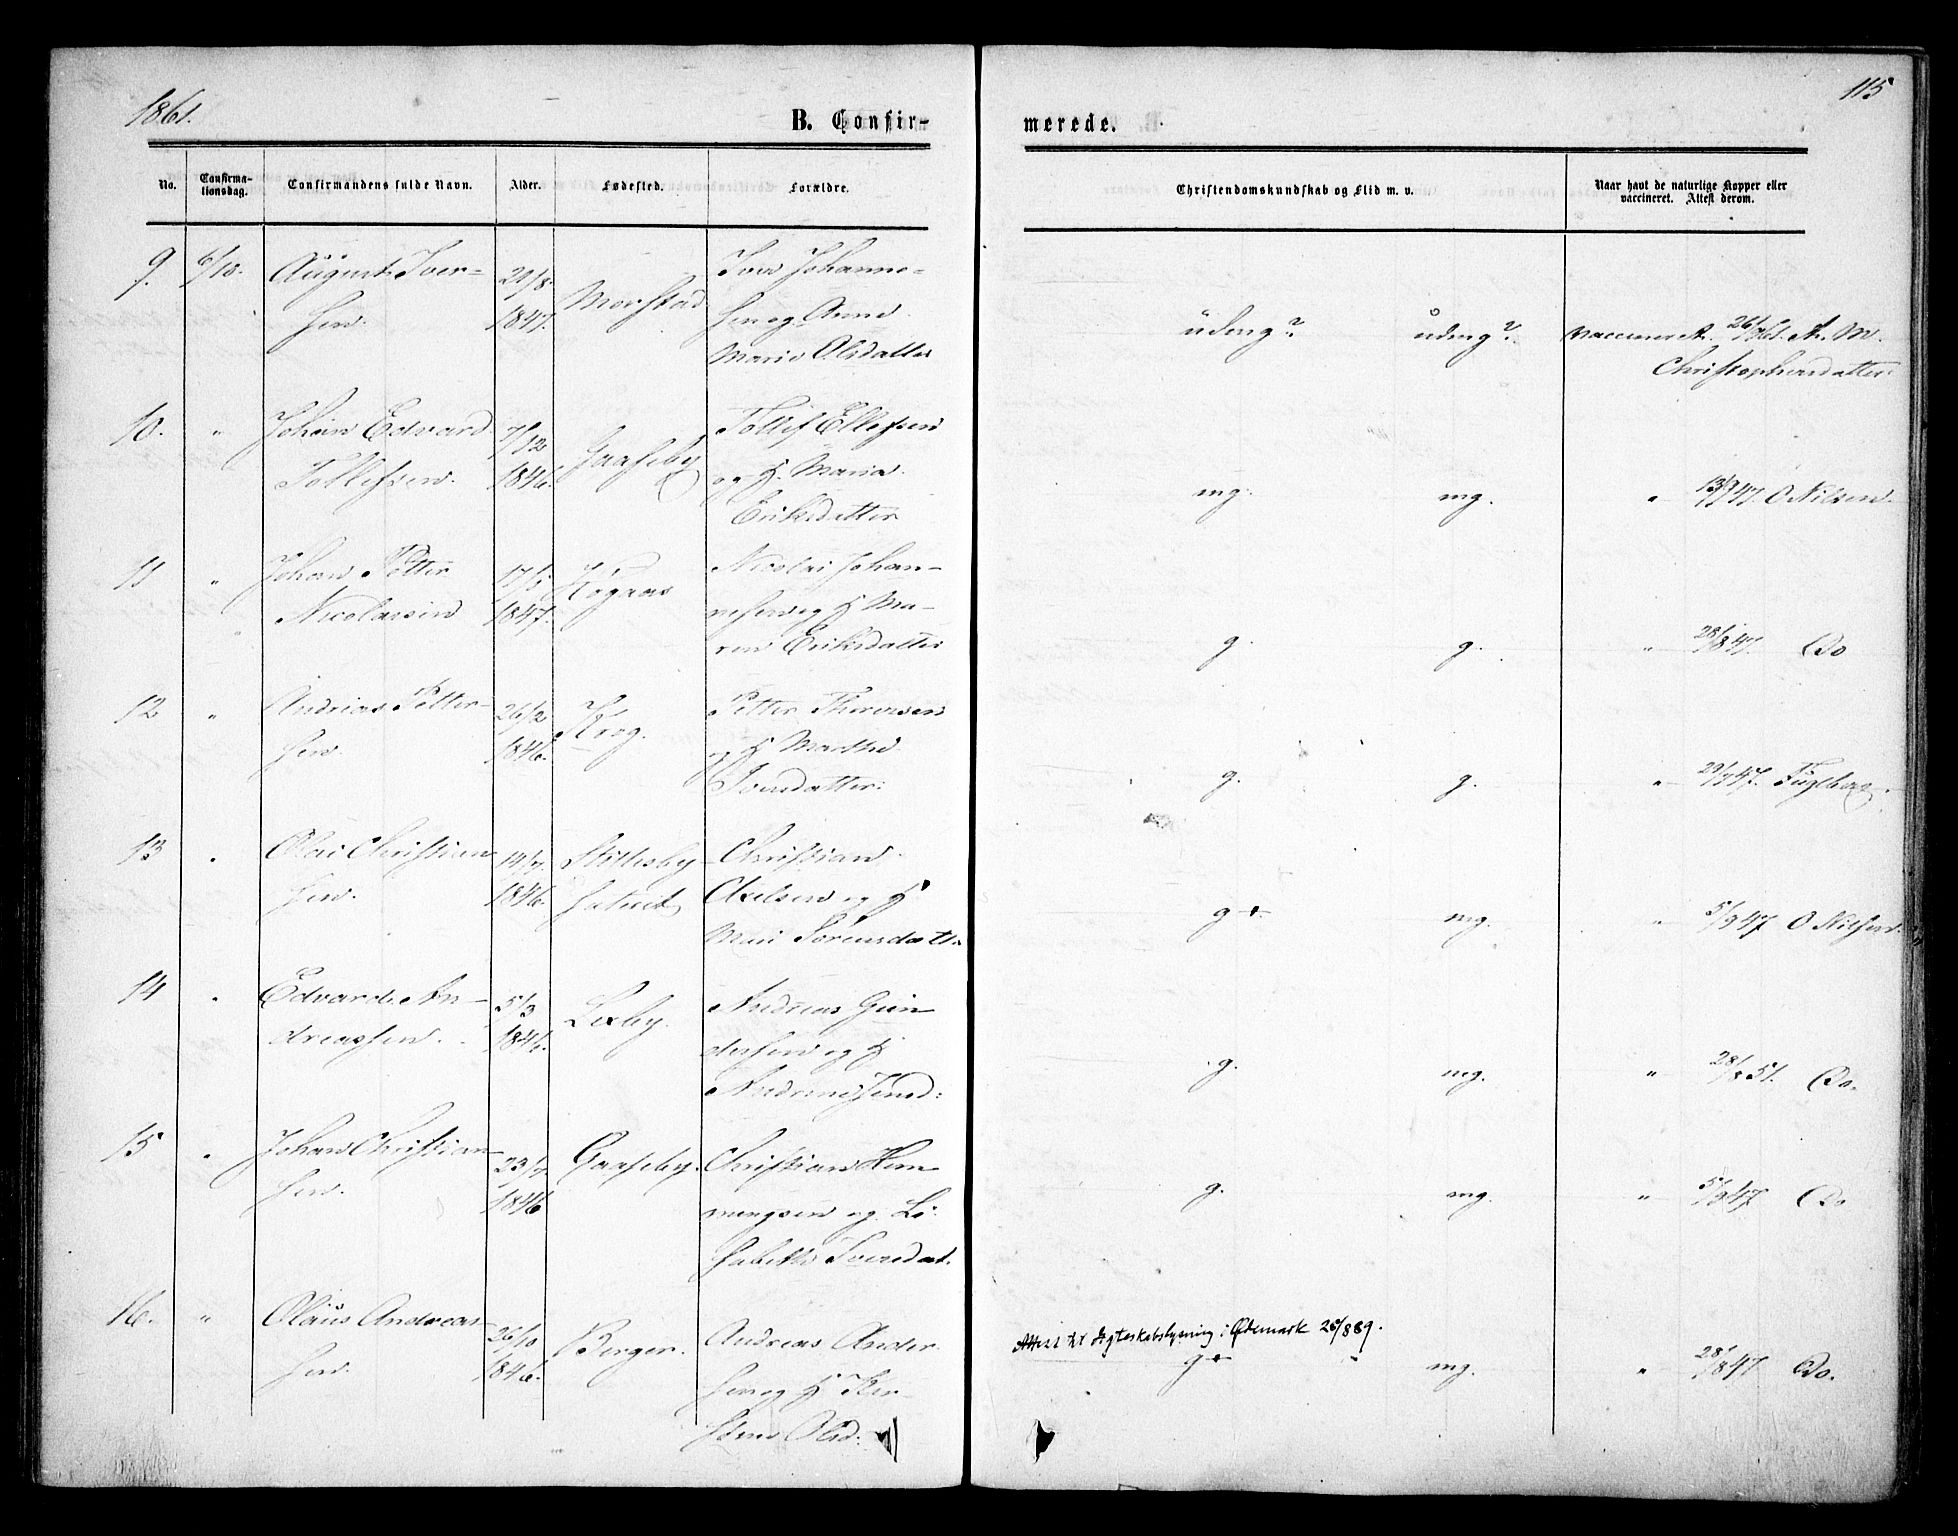 1861.
115
B. Confir-
merede.
No.
Confirma-
tionsdag.
Confirmandens fulde Navn.
Alder.
Fødested.
Forældre.
Christendomskundskab og Flid m. v.
Naar havt de naturlige Kopper eller
vaccineret. Attest derom.
9. 6/10. August Iver-
sen.
29/8
1847.
Morstad
Iver Johanne-
sen og Anne
Marie Olsdatter
udmg? udmg? vaccineret 26/ 61. A. M.
Christophersdatter
10. " Johan Edvard
Tollefsen.
7/12
1846.
Gaaseby
Tollef Ellefsen
og H. Maria
Eriksdatter
mg. mg. " 47. O Nilsen.
11 " Johan Petter
Nicolaisen
17/5
1847.
Nicolai Johan-
nesen og H Ma-
ren Eriksdatter
g. g. " 28/8 47. Do
12 " Andreas Petter-
sen.
26/2
1846.
Krog.
Petter
og H Marthe
Iversdatter.
g. g. " 47. Fuglberg.
13 " Olai Christian-
sen.
14/7
1846.
Christian
Axelsen og H
Mari Sørensdatt.
g+. mg. " 5/9 47 O Nilsen.
14 " Edvard An-
dreassen.
5/3
1846.
Lexby.
Andreas Gun-
dersen og H
g. mg. " 28/8 51. Do.
15 " Johan Christian-
sen.
23/7
1846
Gaaseby.
Christian Hem-
mingsen og Li-
sabeth Svendsdat.
g. mg. " 5/9 47 Do
16. " Olaus Andreas-
sen.
26/10
1846.
Berger.
Andreas Ander-
sen og H Kir-
stine Olsd.
Attest til Ægteskabslysning i Ødemark 20/8 89.
g+ mg. " 28/8 47 Do.